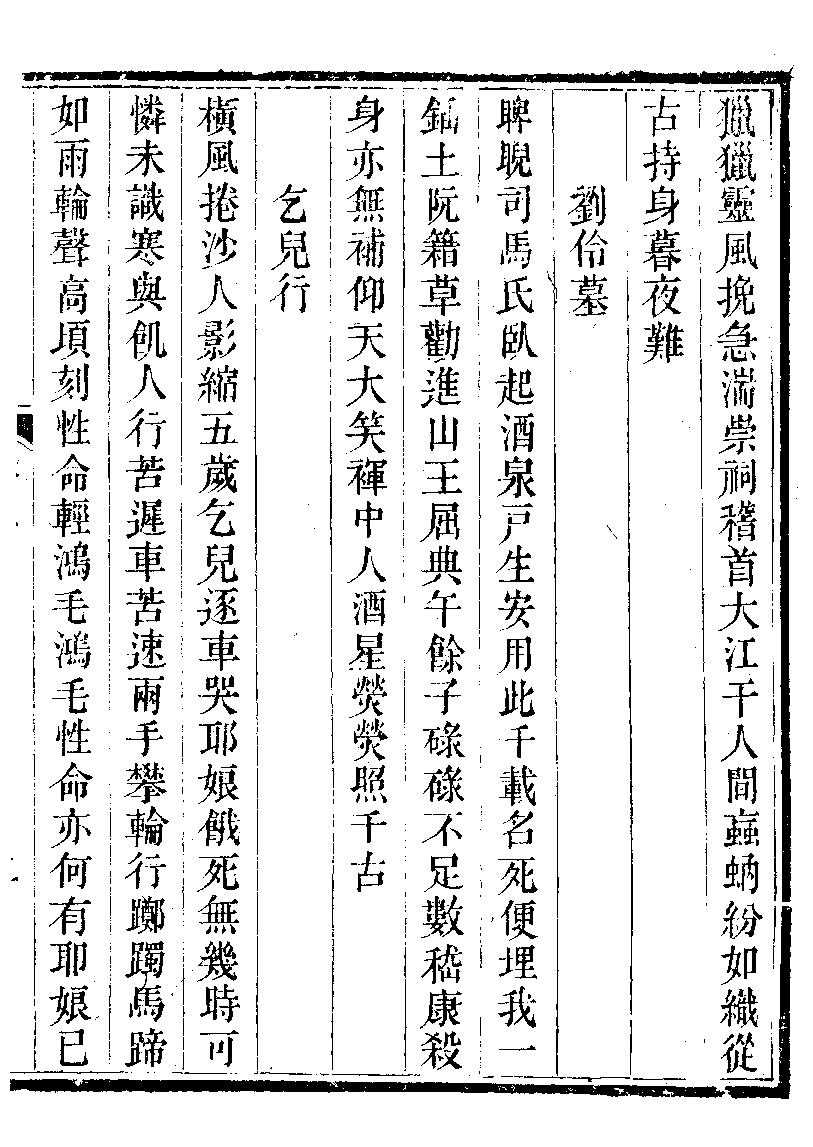 獵獵靈風挽急湍崇祠稽首大江干人間蝨蚋紛如織從
古持身暮夜難
劉伶墓
睥睨司馬氏臥起酒泉戸生安用此千載名死便埋我一
鍤土阮籍草勸進山王屈典午餘子碌碌不足數嵇康殺
身亦無補仰天大笑褌中人酒星熒熒照千古
乞兒行
橫風捲沙人影縮五歲乞兒逐車哭耶娘餓死無幾時可
憐未識寒與飢人行苦遲車苦速兩手攀輪行躑躅馬蹄
如雨輪聲高頃刻性命輕鴻毛鴻毛性命亦何有耶娘已